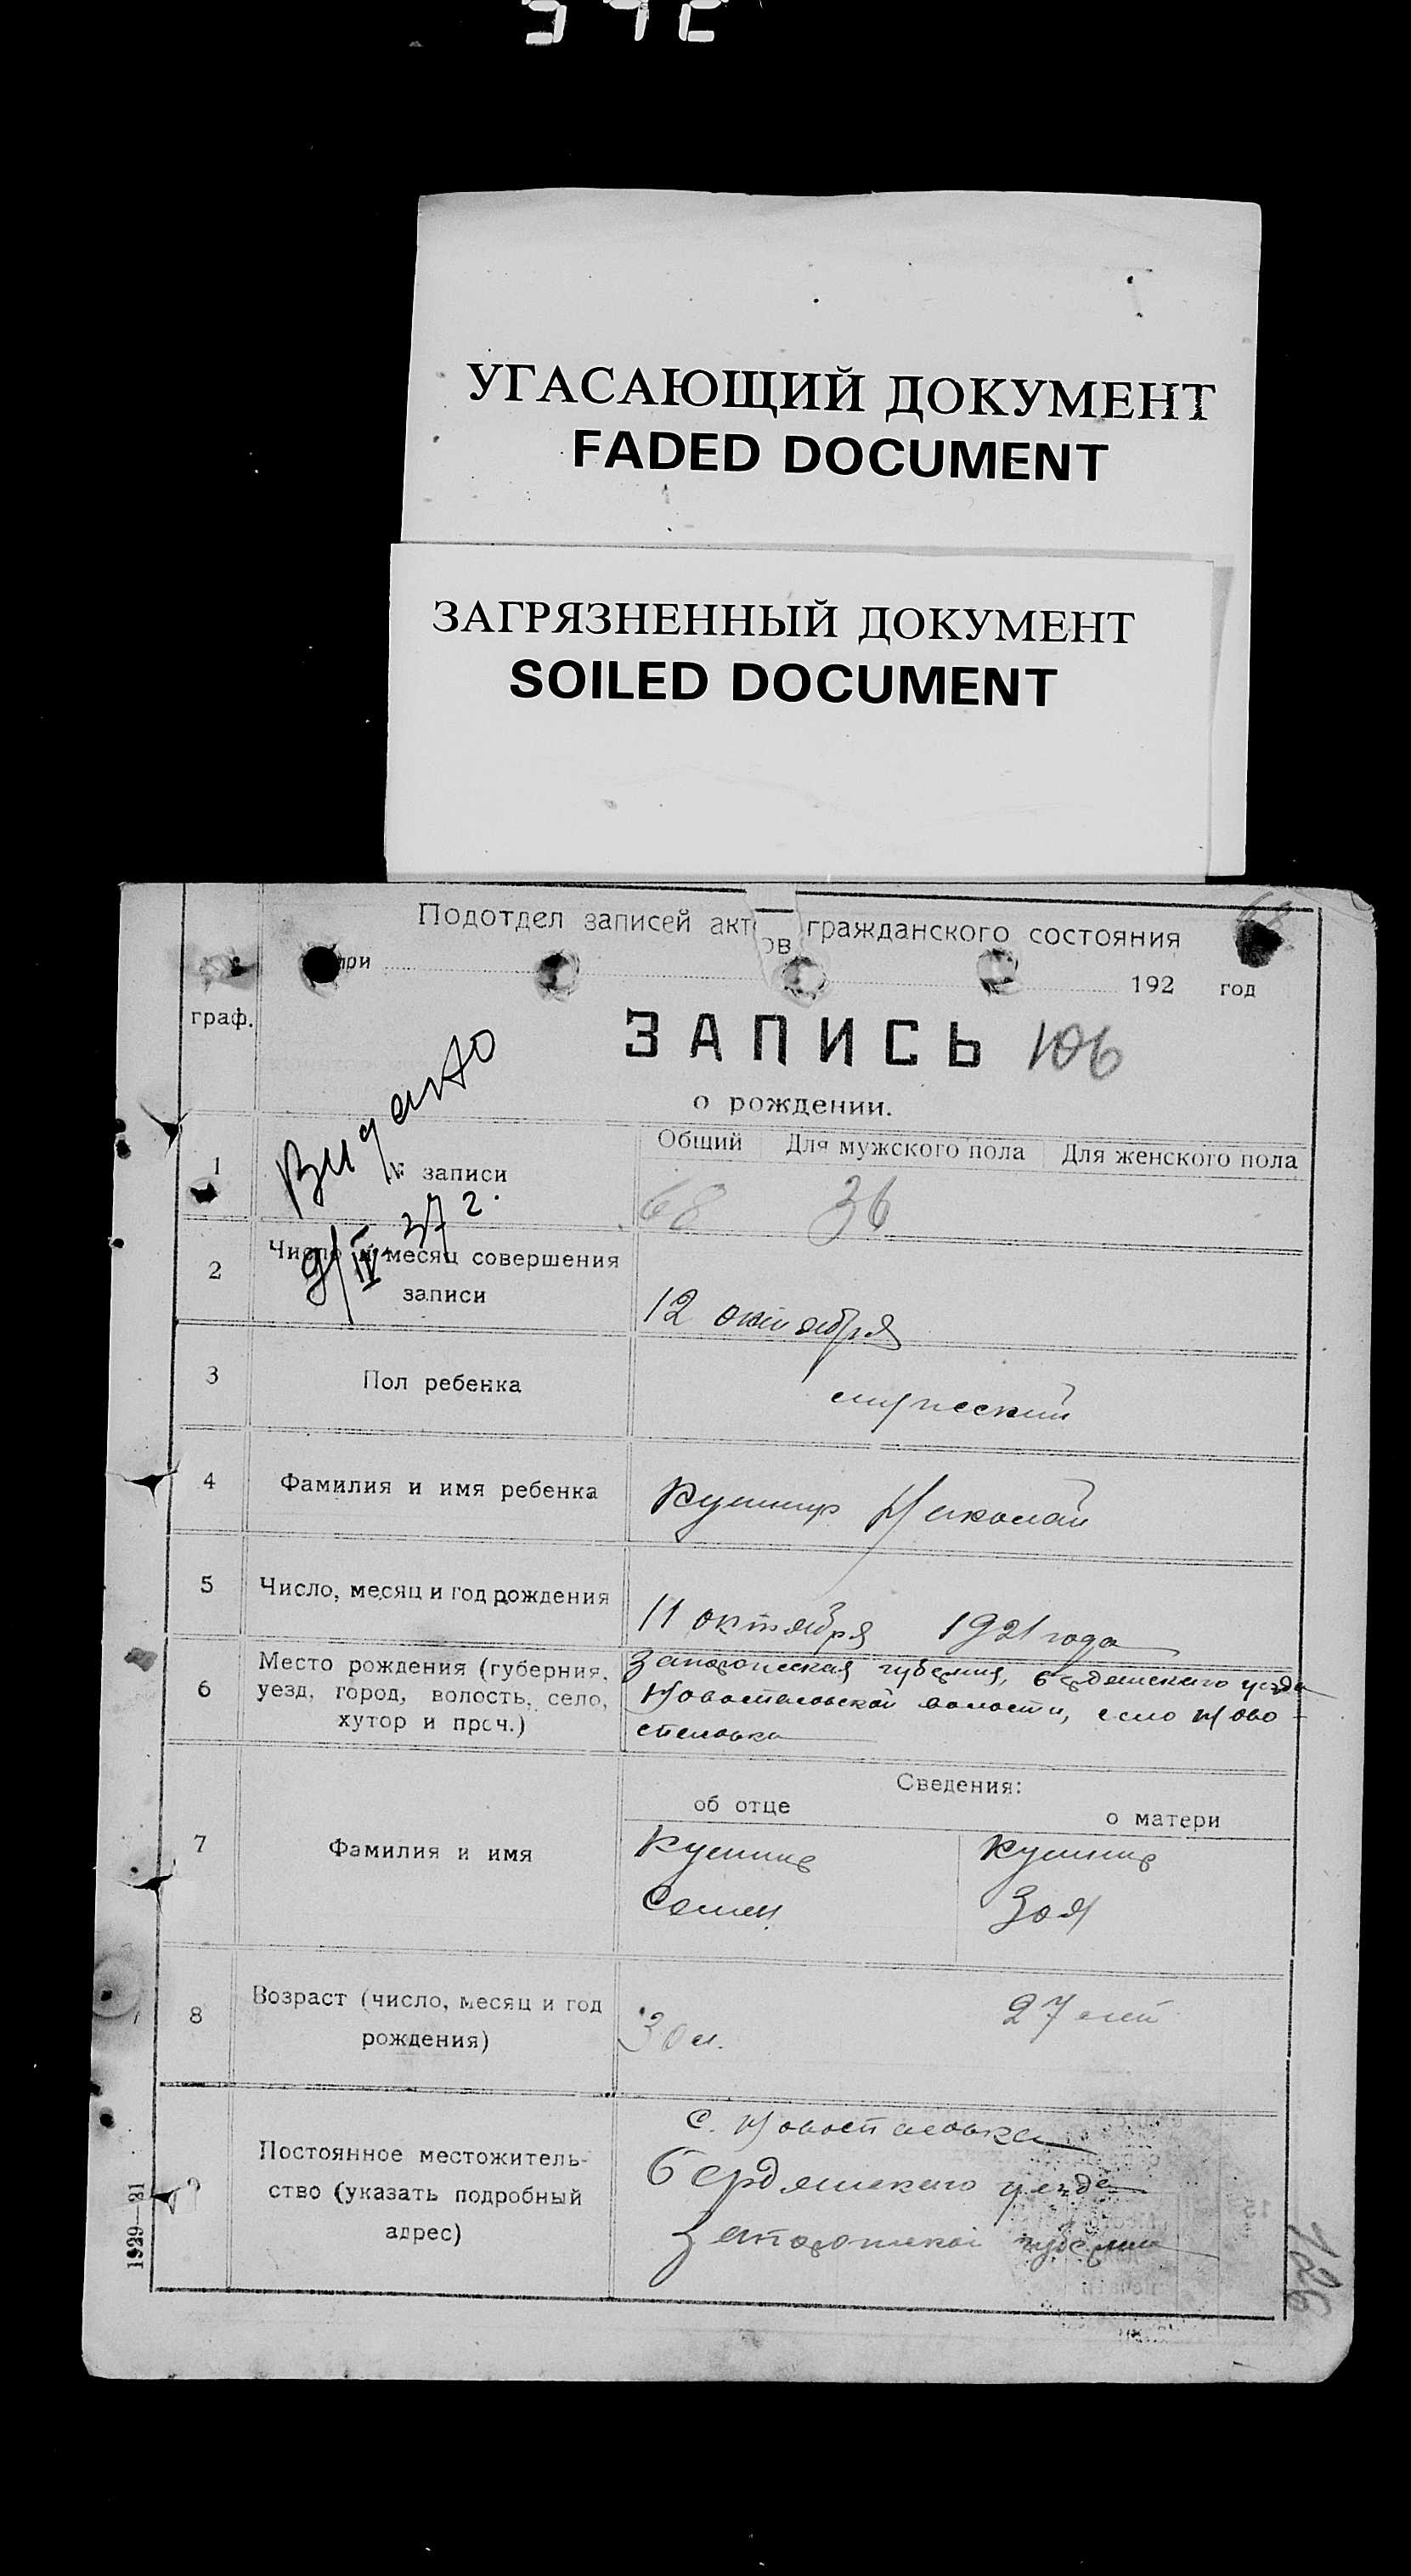 УГАСАЮЩИЙ ДОКУМЕНТ
FADED DOCUMENT
ЗАГРЯЗНЕННЫЙ ДОКУМЕНТ
SOILED DOCUMENT
Подотдел записей актов гражданского состояния
при 192 год
граф.
ЗАПИСЬ 106
о рождении.
Видано
9/IV 37 г.
Общий Для мужского пола Для женского пола
1 № записи 68 36
2 Число и месяц совершения
записи 12 октября
3 Пол ребенка мужеский
4 Фамилия и имя ребенка Кушнир Николай
5 Число, месяц и год рождения 11 октября 1921 года
6 Место рождения (губерния, уезд, город, волость, село, хутор и проч.)
Запорожская губерния, Бердянского уезда
волости, село Ново-
Сведения:
об отце о матери
7 Фамилия и имя Кушнир Кушнир
Семен Зоя
8 Возраст (число, месяц и год
рождения) 30 л. 27 лет
Постоянное местожитель-
ство (указать подробный
адрес)
с.
Бердянского уезда
Запорожской губернии
1929—21
126